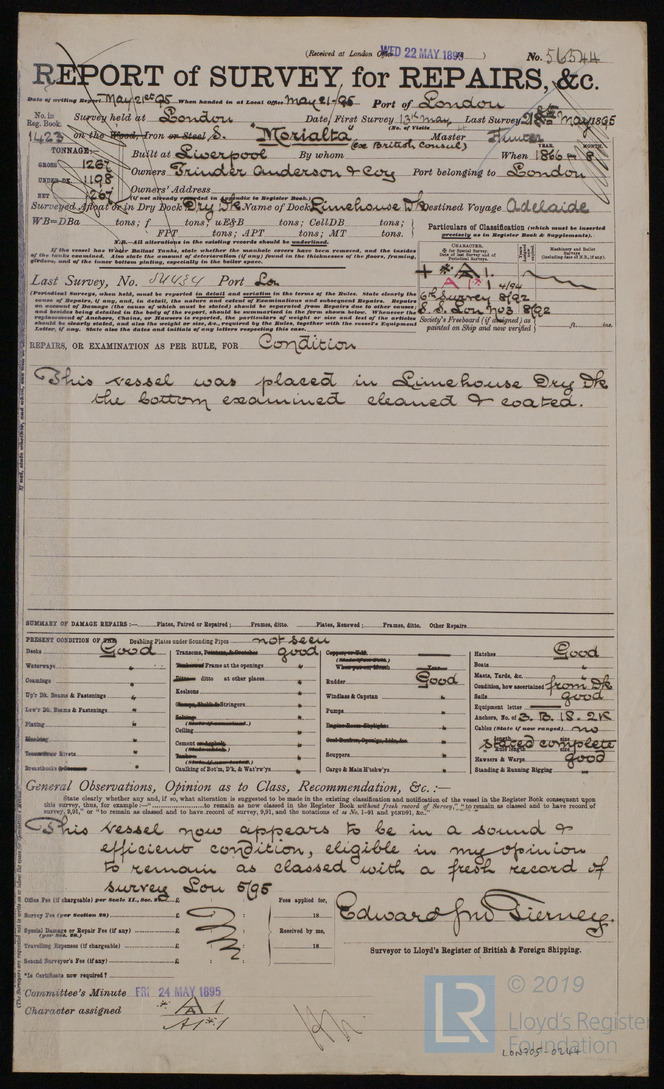 (Received at London Office WED 22 MAY 1895 )
No. 56544
REPORT of SURVEY for REPAIRS, &c.
Date of writing Report May 21st 95 When handed in at Local Office May 21-95 Port of London
No. in Reg. Book. Survey held at London Date, First Survey 13th May Last Survey May 1895
(No. of Visits
1423 on the Wood, Iron or Steel S. "Morialta" Master Hunter
(ex British Consul)
TONNAGE: Built at Liverpool By whom When 1866 - 8
YEAR. MONTH.
GROSS 1267
UNDER DK. 1198
NET 1267
Owners Trinder Anderson & Coy Port belonging to London
Owners' Address
(if not already recorded in Appendix to Register Book.)
Surveyed Afloat or in Dry Dock Dry Dk Name of Dock Limehouse Dk Destined Voyage Adelaide
WB=DBa tons; f tons; uE&B tons; CellDB tons;
FPT tons; APT tons; MT tons.
N.B.—All alterations in the existing records should be underlined.
If the vessel has Water Ballast Tanks, state whether the manhole covers have been removed, and the insides of the tanks examined. Also state the amount of deterioration (if any) found in the thicknesses of the floors, framing, girders, and of the inner bottom plating, especially in the boiler space.
Particulars of Classification (which must be inserted precisely as in Register Book & Supplements).
CHARACTER.
for Special Survey.
Date of last Survey and of Periodical Surveys.
Machinery and Boiler Surveys (including date of N.B., if any).
+ * A 1.
A 1* 4/94
Survey 8/92
S.S. Lon No3 8/92
Society's Freeboard (if assigned) as painted on Ship and now verified ft. ins.
Last Survey, No. 54434 Port Lon
(Periodical Surveys, when held, must be reported in detail and seriatim in the terms of the Rules. State clearly the cause of Repairs, if any, and, in detail, the nature and extent of Examinations and subsequent Repairs. Repairs on account of Damage (the cause of which must be stated) should be separated from Repairs due to other causes; and besides being detailed in the body of the report, should be summarized in the form shown below. Whenever the replacement of Anchors, Chains, or Hawsers is reported, the particulars of weight or size and test of the articles should be clearly stated, and also the weight or size, &c., required by the Rules, together with the vessel's Equipment Letter, if any. State also the dates and initials of any letters respecting this case.
REPAIRS, OR EXAMINATION AS PER RULE, FOR Condition
This vessel was placed in Limehouse Dry Dk
the bottom examined cleaned & coated.
SUMMARY OF DAMAGE REPAIRS :— Plates, Faired or Repaired; Frames, ditto. Plates, Renewed; Frames, ditto. Other Repairs
PRESENT CONDITION OF THE Doubling Plates under Sounding Pipes not seen
Decks Good
Waterways "
Coamings "
Up'r Dk. Beams & Fastenings "
Low'r Dk. Beams & Fastenings "
Plating "
Planking
Treenails or Rivets "
Breasthooks & Crutches "
Transoms, Pointers, & Crutches good
Timbers or Frame at the openings "
Ditto ditto at other places "
Keelsons "
Clamps, Shelfs & Stringers "
Salting
(State if examined.)
Ceiling "
Cement or Asphalt "
(State which.)
Caulking of Bot'm, D'k, & Wat'rw'ys "
Copper or Y.M.
(State if on Felt.)
When put on, Month Year
Rudder Good
Windlass & Capstan "
Pumps "
Engine Room Skylights
Coal Bunkers, Openings, Lids, &c.
Scuppers "
Cargo & Main H'tchw'ys "
Hatches Good
Boats "
Masts, Yards, &c. "
Condition, how ascertained from Dk
Sails good
Equipment letter
Anchors, No. of 3. B. 1S. 2K
Cables (State if now ranged) no
length size
stated complete
Hawsers & Warps good
Standing & Running Rigging "
General Observations, Opinion as to Class, Recommendation, &c.:—
State clearly whether any and, if so, what alteration is suggested to be made in the existing classification and notification of the vessel in the Register Book consequent upon this survey, thus, for example :—" to remain as classed in the Register Book without fresh record of Survey," "to remain as classed and to have record of survey, 9,91," or "to remain as classed and to have record of survey, 9,91, and the notations of ss No. 1-91 and ptND91, &c."
This vessel now appears to be in a sound &
efficient condition, eligible in my opinion
to remain as classed with a fresh record of
survey Lon 5/95
Office Fee (if chargeable) per Scale II., Sec. £ : :
Survey Fee (per Section 28) £ : :
Special Damage or Repair Fee (if any) £ : :
(per Sec. 28.)
Travelling Expenses (if chargeable) £ : :
Second Surveyor's Fee (if any) £ : :
Fees applied for,
18
Received by me,
18
Edward Jno Tierney.
Surveyor to Lloyd's Register of British & Foreign Shipping.
*Is Certificate now required?
Committee's Minute FRI 24 MAY 1895
Character assigned * A 1
A1*1
LR © 2019
Lloyd's Register
Foundation
LON705-0244